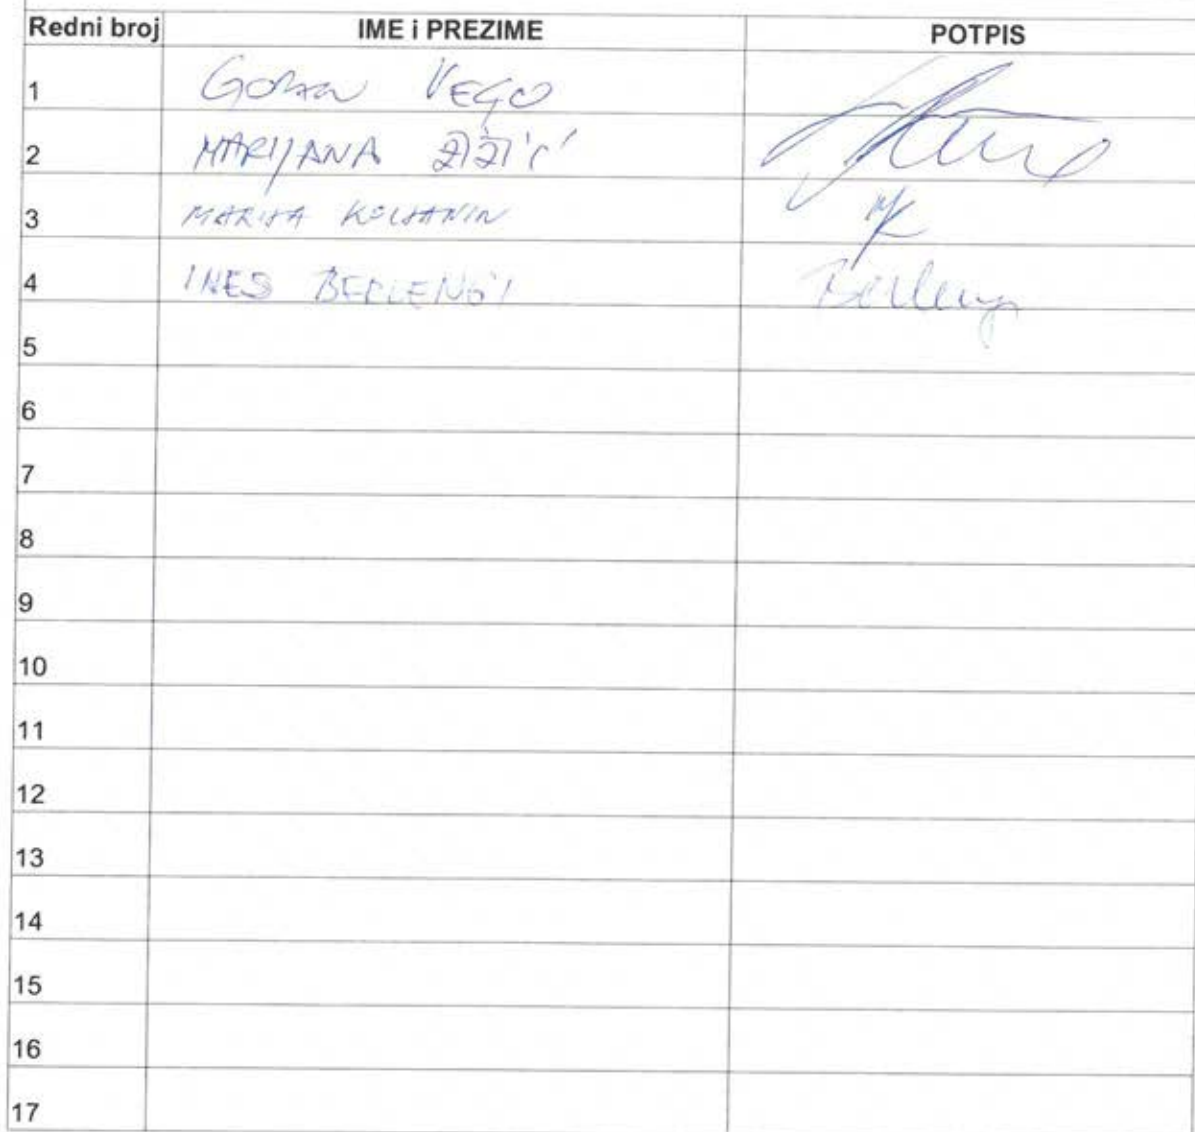 Redni broj IME i PREZIME POTPIS
1 GORAN VEGO
2 MARIJANA ŽIŽIĆ
3 MARIJA KOLJANIN MK
4 INES BERLENGI Berlengi
5
6
7
8
9
10
11
12
13
14
15
16
17